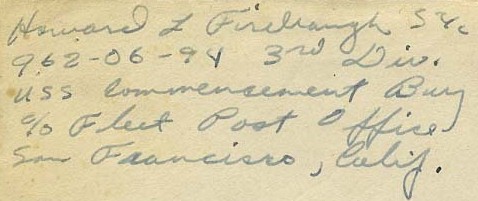 Howard L Firebaugh S 1/c
962-06-94 3rd Div.
USS Commencement Bay
c/o Fleet Post Office
San Francisco, Calif.